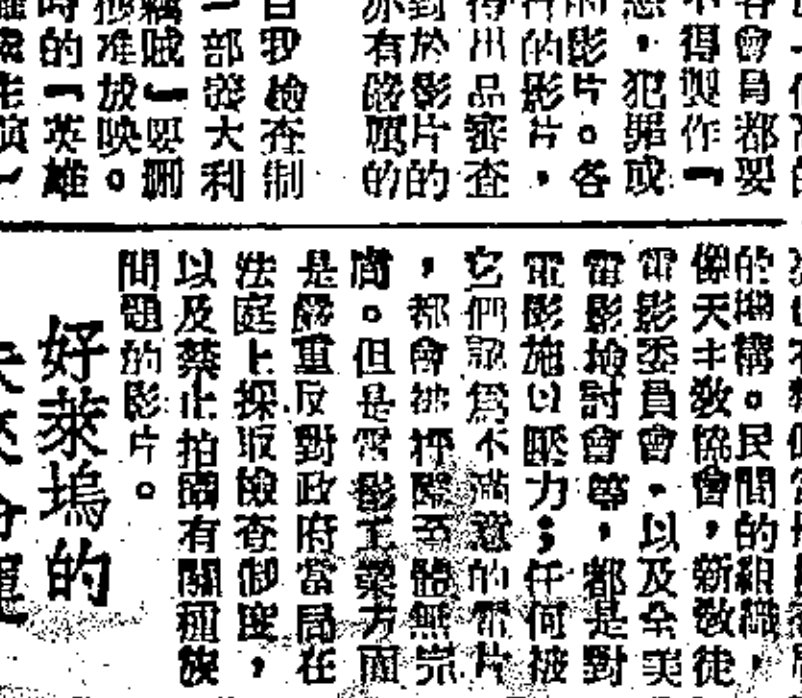 會員都要
得製作「
，犯罪或
影片。各
的影片，
品審查
於影片的
有嚴厲的
我檢查制
部 大利
賊「要刪
准放映。
的「英雄
的機構。民間的組織，
像天主教協會，新教徒
電影委員會，以及全美
電影檢討會等，都是對
電影施以壓力；任何被
它們認爲不滿意的電片
，都會被抨擊至體無完
膚。但是電影工業方面
是嚴重反對政府當局在
法庭上採取檢查制度，
以及禁止拍攝有關種族
問題的影片。
好萊塢的